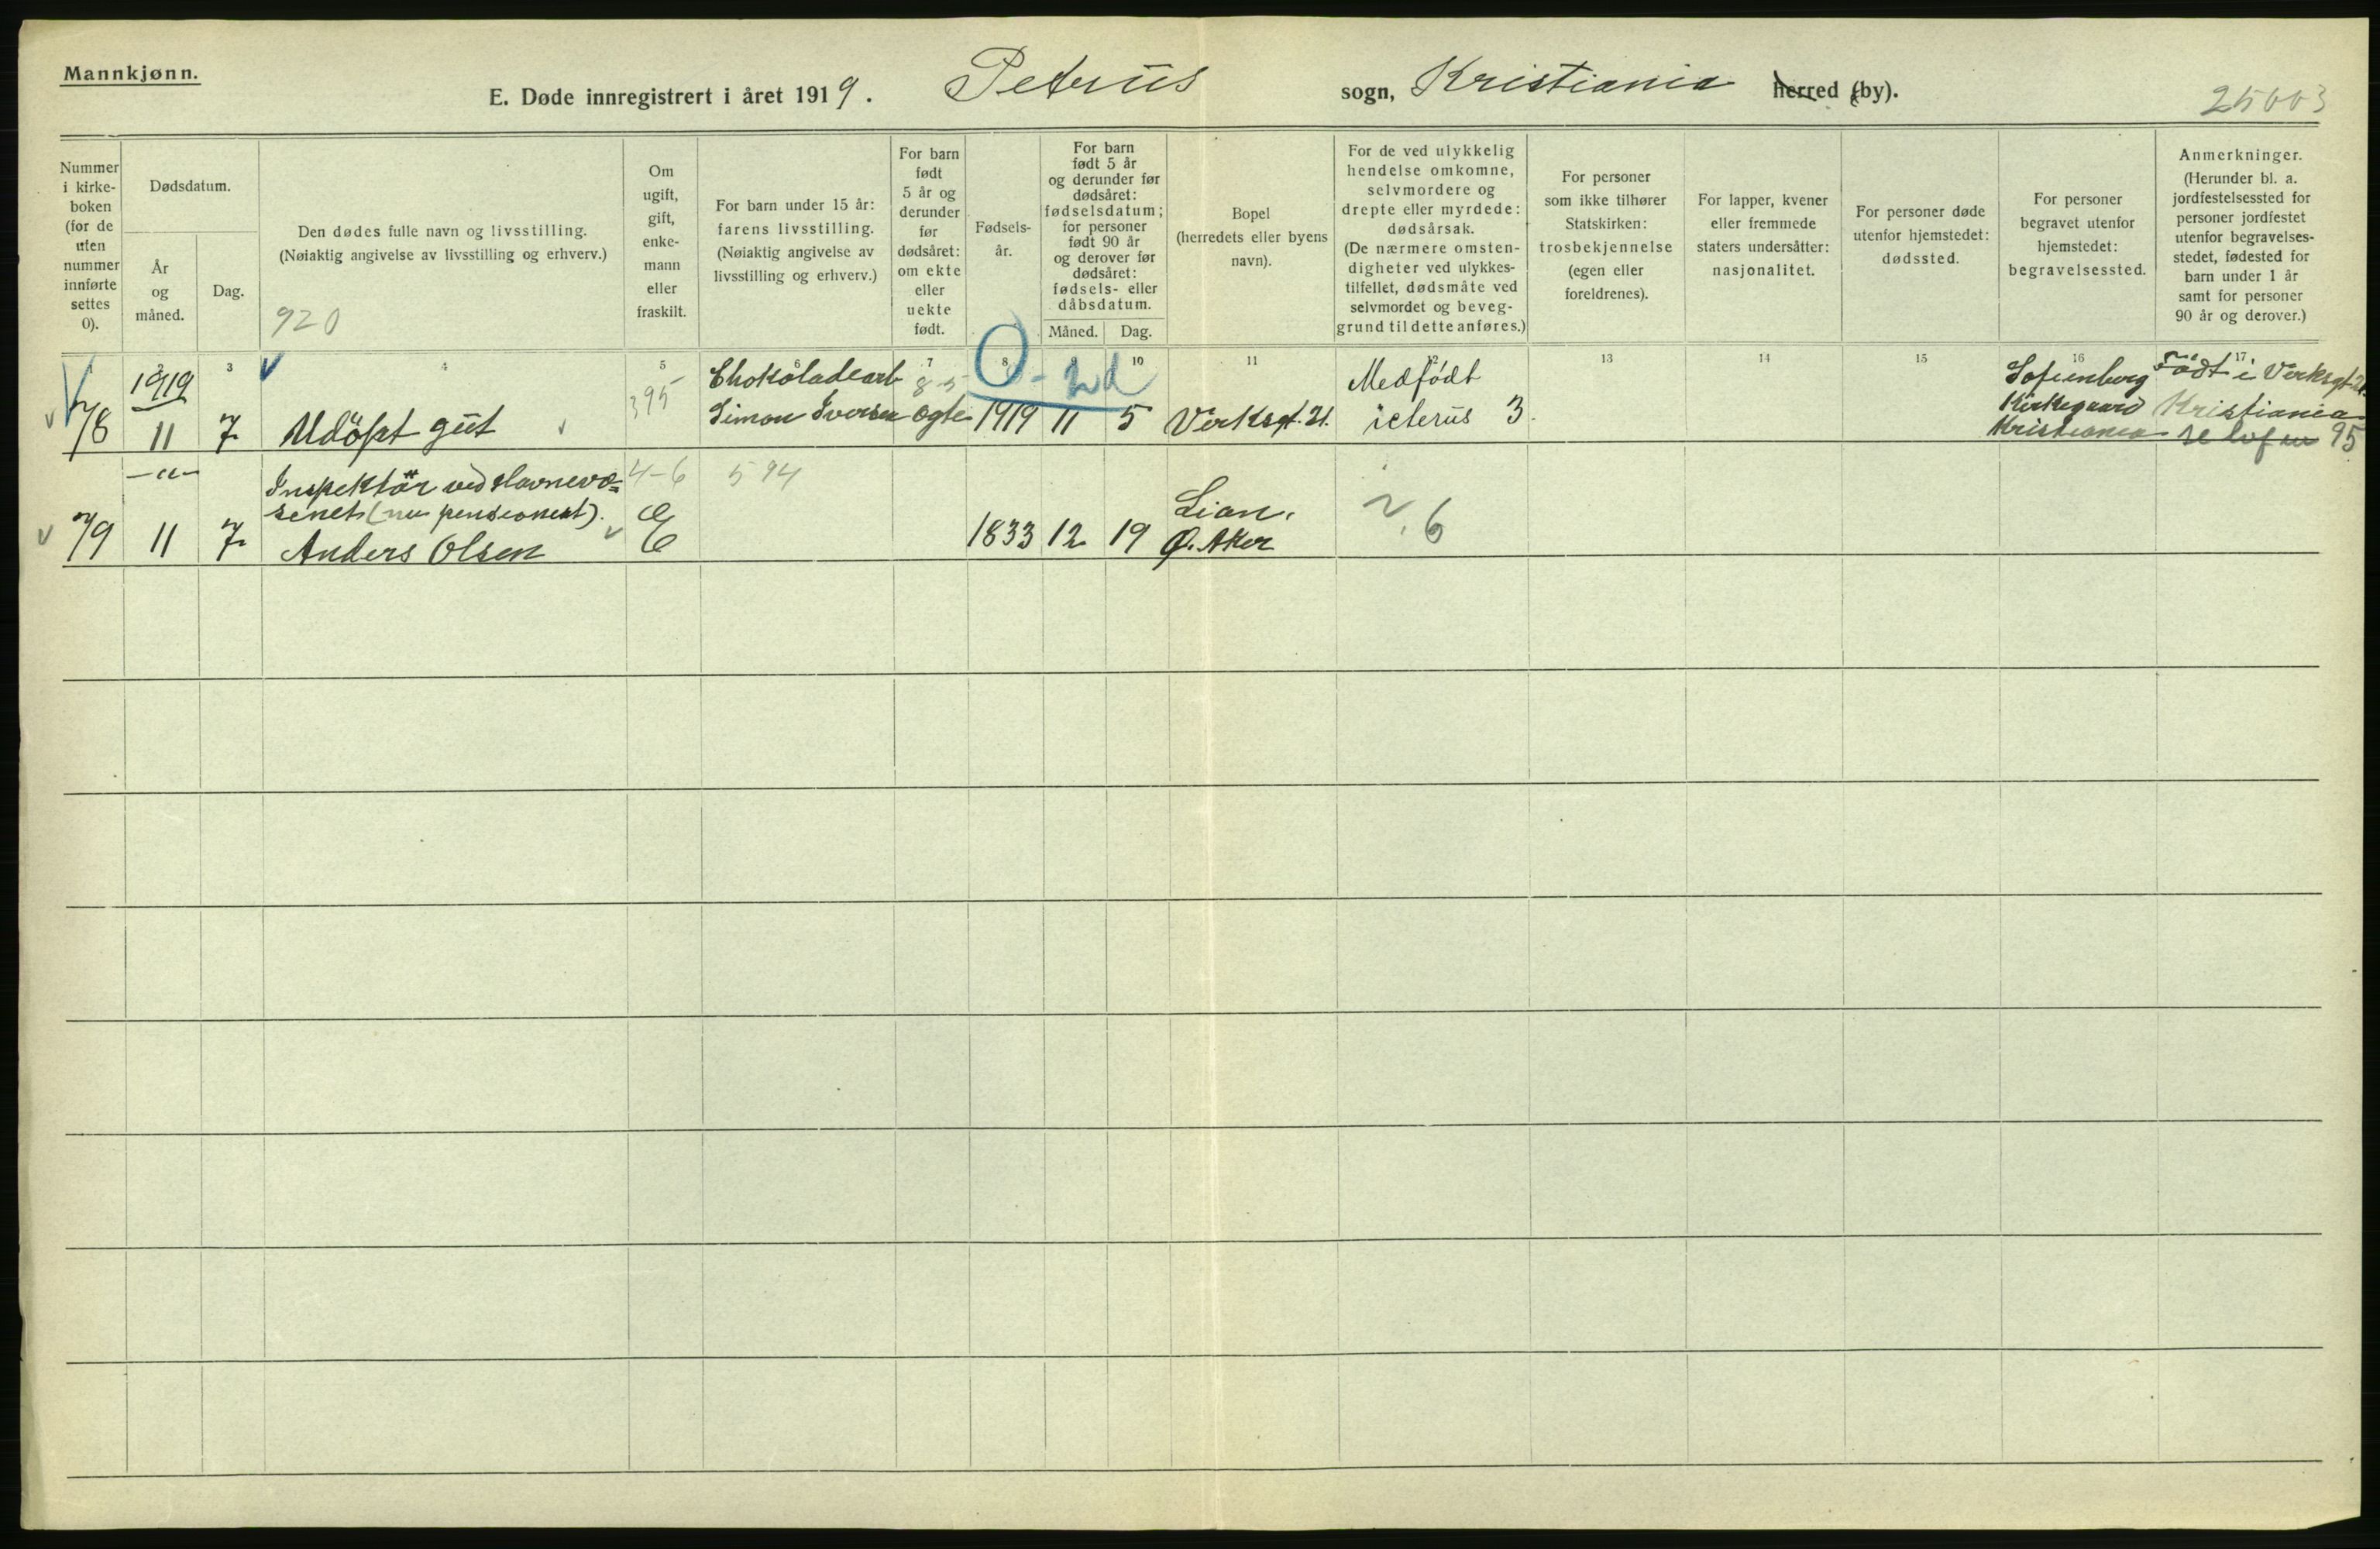 Mannkjønn.
E. Døde innregistrert i året 1919. Petrus sogn, Kristiania herred (by).
25003
Nummer i kirke-boken (for de uten nummer innførte settes 0).
Dødsdatum.
År og måned.
Dag.
Den dødes fulle navn og livsstilling.
(Nøiaktig angivelse av livsstilling og erhverv.)
920
Om ugift, gift, enke-mann eller fraskilt.
For barn under 15 år:
farens livsstilling.
(Nøiaktig angivelse av
livsstilling og erhverv.)
For barn født 5 år og derunder før dødsåret: om ekte eller uekte født.
Fødsels-år.
For barn født 5 år og derunder før dødsåret: fødselsdatum; for personer født 90 år og derover før dødsåret: fødsels- eller dåbsdatum.
Måned. Dag.
Bopel
(herredets eller byens
navn).
For de ved ulykkelig
hendelse omkomne,
selvmordere og
drepte eller myrdede:
dødsårsak.
(De nærmere omsten-
digheter ved ulykkes-
tilfellet, dødsmåte ved
selvmordet og beveg-
grund til dette anføres.)
For personer
som ikke tilhører
Statskirken:
trosbekjennelse
(egen eller
foreldrenes).
For lapper, kvener
eller fremmede
staters undersåtter:
nasjonalitet.
For personer døde
utenfor hjemstedet:
dødssted.
For personer
begravet utenfor
hjemstedet:
begravelsessted.
Anmerkninger.
(Herunder bl. a.
jordfestelsessted for
personer jordfestet
utenfor begravelses-
stedet, fødested for
barn under 1 år
samt for personer
90 år og derover.)
3 4 5 6 7 8 9 10 11 12 13 14 15 16 17
1919 395 Chokoladearb 8-5 0-2d Medfödt Sofienberg Födt i Verksgt 21.
78 11 7 Udöpt gut Simon Iversen ægte 1919 11 5 Verksgt. 21. icterus 3. Kirkegaard Kristiania
Kristiania 95
-"- Inspektör ved Havnevæ= 4-6 594
senet (nu pensionert). Lian.
79 11 7 Anders Olsen E 1833 12 19 Ø. Aker 6